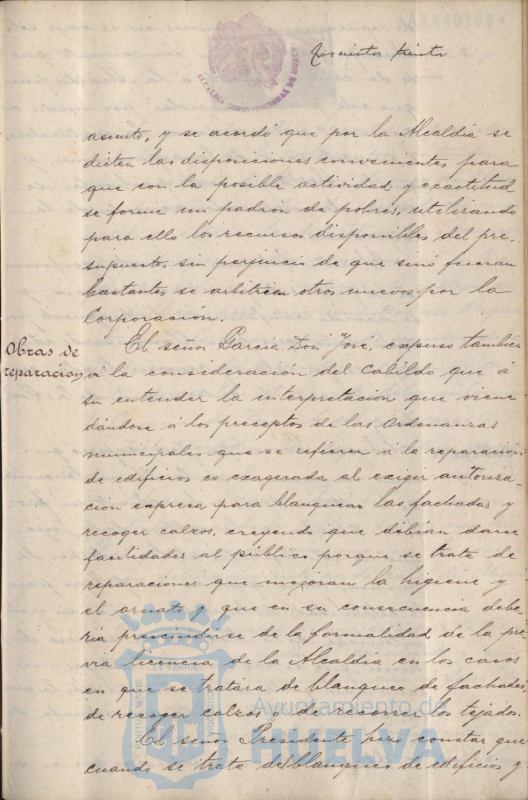 Doscientos treinta
asunto, y se acordó que por la Alcaldía se
dicten las disposiciones convenientes para
que con la posible actividad y exactitud
se forme un padrón de pobres, utilizando
para ello los recursos disponibles del pre-
supuesto, sin perjuicio de que sinó fueran
bastantes se arbitren otros nuevos por la
Corporación.
Obras de
reparación
El señor García Don José, expuso también
á la consideración del Cabildo que á
su entender la interpretación que viene
dándose á los preceptos de las Ordenanzas
municipales que se refieren á la reparación
de edificios es exagerada al exigir autoriza-
ción expresa para blanquear las fachadas y
recoger calzos, creyendo que debían darse
facilidades al público porque se trata de
reparaciones que mejoran la higiene y
el ornato y que en su consecuencia debe-
ría prescindirse de la formalidad de la pre-
via licencia de la Alcaldía en los casos
en que se tratara de blanqueo de fachadas
de recoger calzos o de recorrer los tejados.
El señor Presidente hizo constar que
cuando se trata del blanqueo de edificios y
Ayuntamiento de
HUELVA